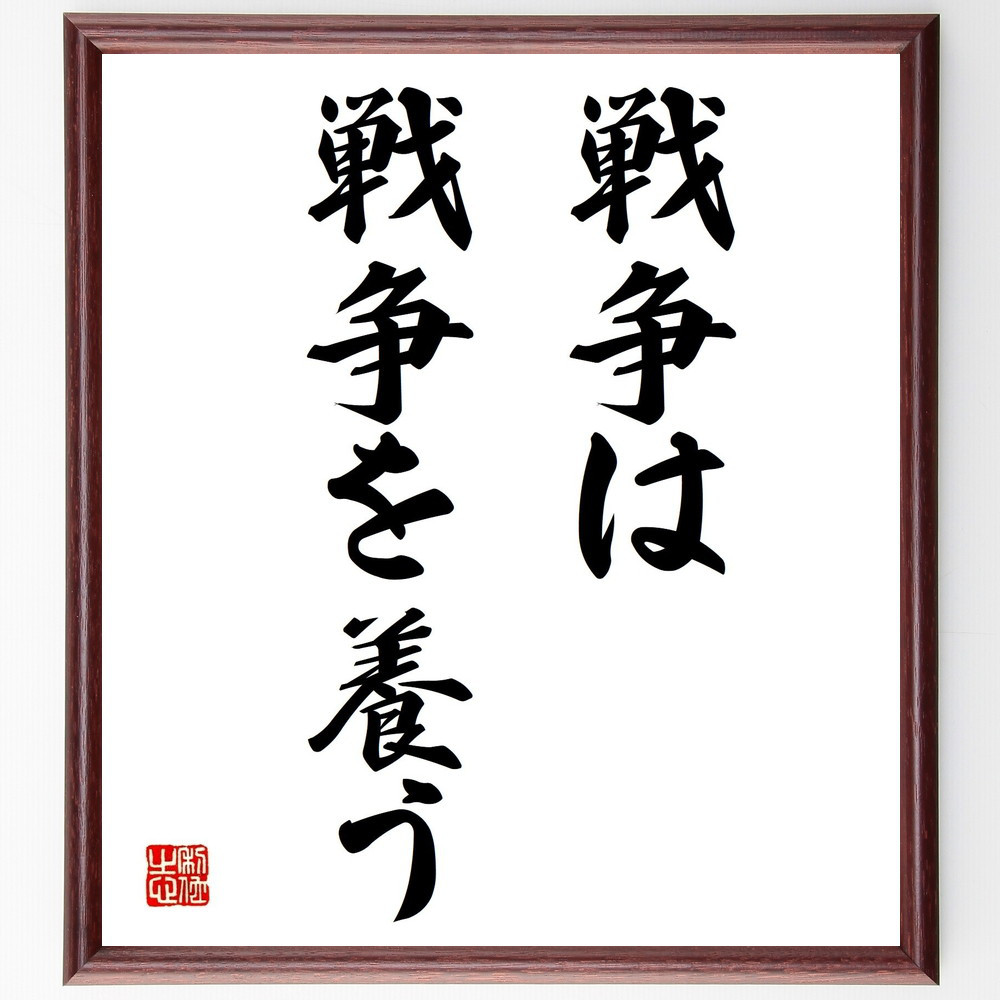 戦争は
戦争を養う